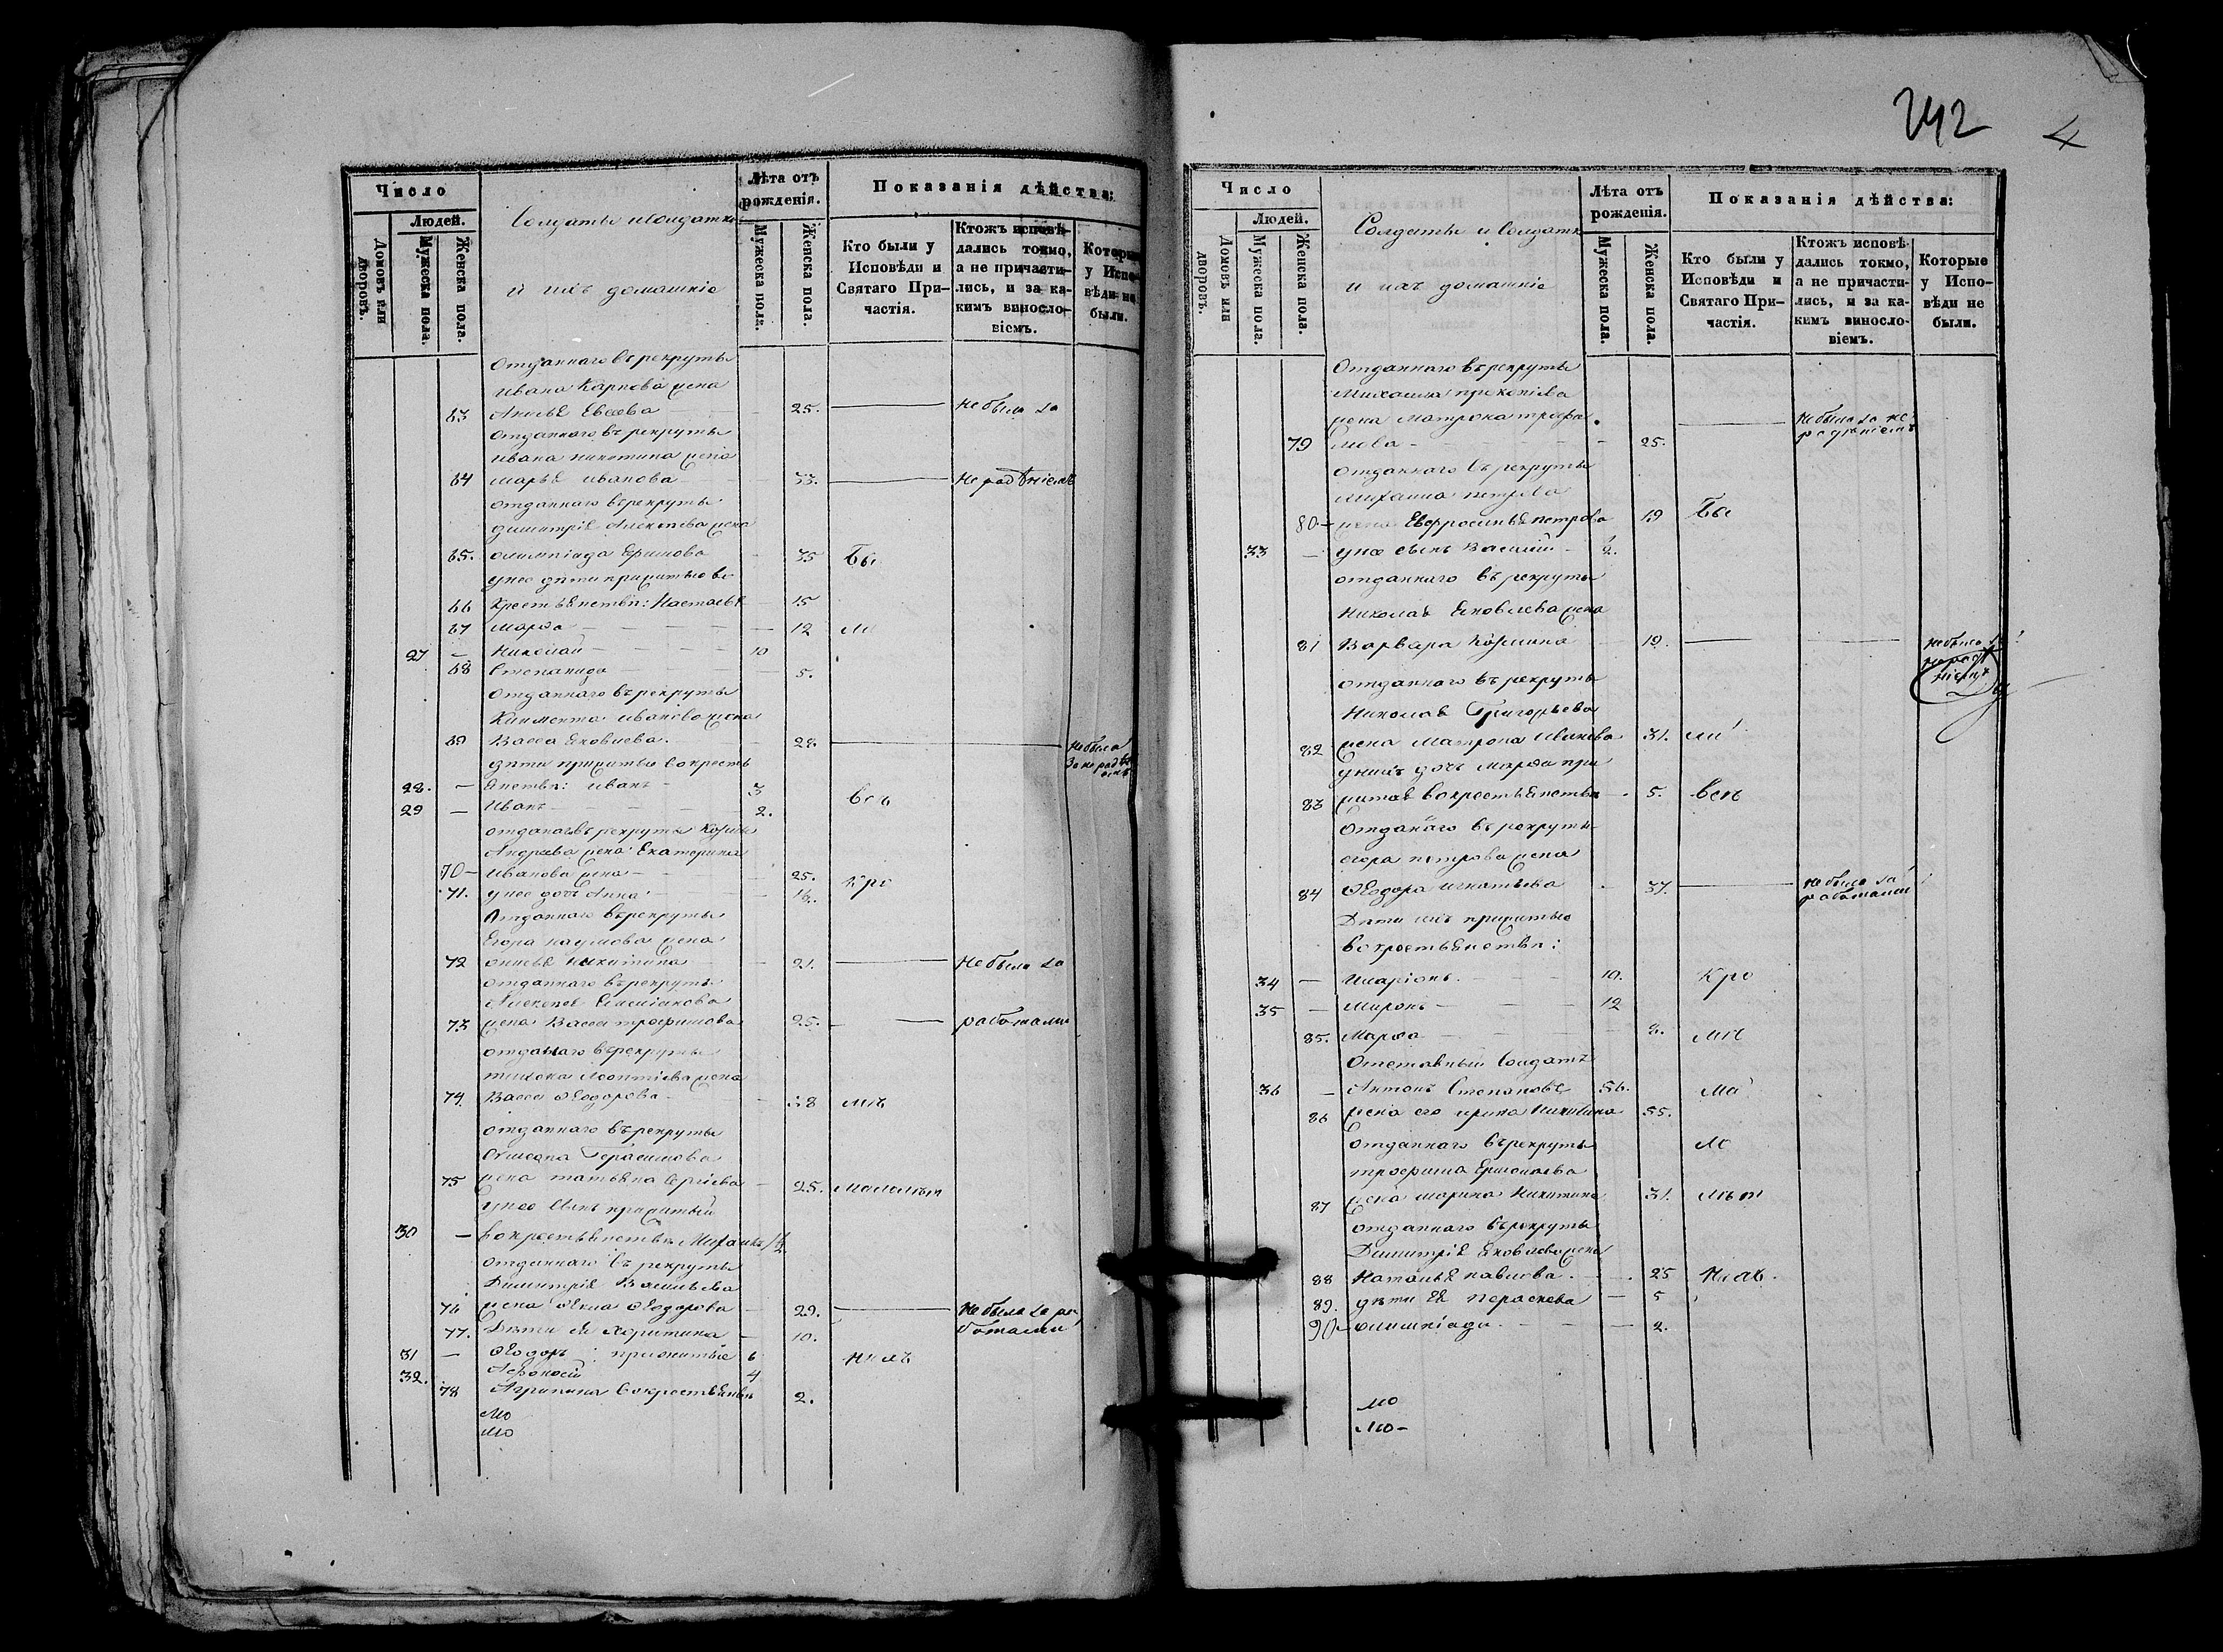 Число
Людей.
Домовъ или дворовъ.
Мужеска пола.
Женска пола.
Солдаты и Солдатки
и ихъ домашніе
Лѣта отъ рожденія.
Мужеска пола.
Женска пола.
Показанія дѣйства:
Кто были у Исповѣди и Святаго Причастія.
Ктожъ исповѣдались токмо, а не причастились, и за какимъ винословіемъ.
Которые у Исповѣди не были.
отданнаго въ рекруты
ивана Карпова жена
63 Евсеева — 25. — не была за
отданнаго въ рекруты
ивана никитина жена
64 марья иванова — 33. — нерадѣніемъ
отданнаго въ рекруты
димитрія Алексѣева жена
65. олимпіада Ефимова — 35 Бы
у нее дѣти прижитые во
66 крестьянствѣ: Настасья — 15
67 марѳа — 12
27 — Николай — 10
68 Степанида — 5.
отданнаго въ рекруты
иванова жена
69 Васса Яковлева. — 28. — не была
дѣти прижитые въ кресть за нерадѣ
28. — янствѣ: иванъ — 3 всъ
29 — Иванъ — 2.
отданнаго въ рекруты
Андреева жена Екатерина
70 — Иванова — 25.
71. у нее дочь Анна — Кро
Отданнаго въ рекруты
Егора наумова жена
72 никитина — 21. — не была за
отданнаго въ рекруты
73 жена Васса трофимова 25. — работами
отданнаго въ рекруты
леонтіева жена
74 Васса Ѳеодорова — 38 мъ
отданнаго въ рекруты
Герасимова
75 жена татьяна Сергіева — 25. малолѣт
у нее сынъ прижитый
30 — въ крестьянствѣ Михаилъ 1/2
отданнаго въ рекруты
Димитрія Васильева
76 жена Ѳекла Ѳеодорова — 29. — не была за ра
77. Дѣти ея Харитина — 10. ботами
31 — Ѳеодоръ прижитые 6
32. Аѳонасій 4
78 Агрипина въ крестьянствѣ 2.
мо
мо
242
4
Число
Людей.
Домовъ или дворовъ.
Мужеска пола.
Женска пола.
Солдаты и Солдатки
и ихъ домашніе
Лѣта отъ рожденія.
Мужеска пола.
Женска пола.
Показанія дѣйства:
Кто были у Исповѣди и Святаго Причастія.
Ктожъ исповѣдались токмо, а не причастились, и за какимъ винословіемъ.
Которые у Исповѣди не были.
отданнаго въ рекруты
Михаила прокопіева
жена Матрона трофи — не была за не
79 мова — 25. радѣніемъ
отданнаго въ рекруты
михаила петрова
80 — жена Евфросинья петрова 19 Бы
33 — у нее сынъ Василій — 2.
отданнаго въ рекруты
Николая Яковлева жена
81 Варвара Козмина 19. — — не была за
отданнаго въ рекруты нерадѣ
ніемъ
Николая Григорьева
82 жена Матрона Иванова 31. ли
у нихъ дочь Марѳа при
83 житая въ крестьянствѣ 5. всъ
Отданнаго въ рекруты
егора петрова жена
84 Ѳеодора игнатьева 37. — не была за
Дѣти ихъ прижитые работами
въ крестьянствѣ:
34 — Иларіонъ. — 10. Кро
35 — Миронъ — 12
85. Марѳа — 8.
Отставный Солдатъ
36 — Антонъ Степановъ 56. Ма
86 жена его ирина 55.
отданнаго въ рекруты ло
трофима Ермолаева
87 жена марина Никитина 31. лѣт
отданнаго въ рекруты
Димитрія Яковлева жена
88 Наталья павлова. 25
89. дѣти ея Параскева — 5
90 — олимпіада. — 2.
мо
мо —